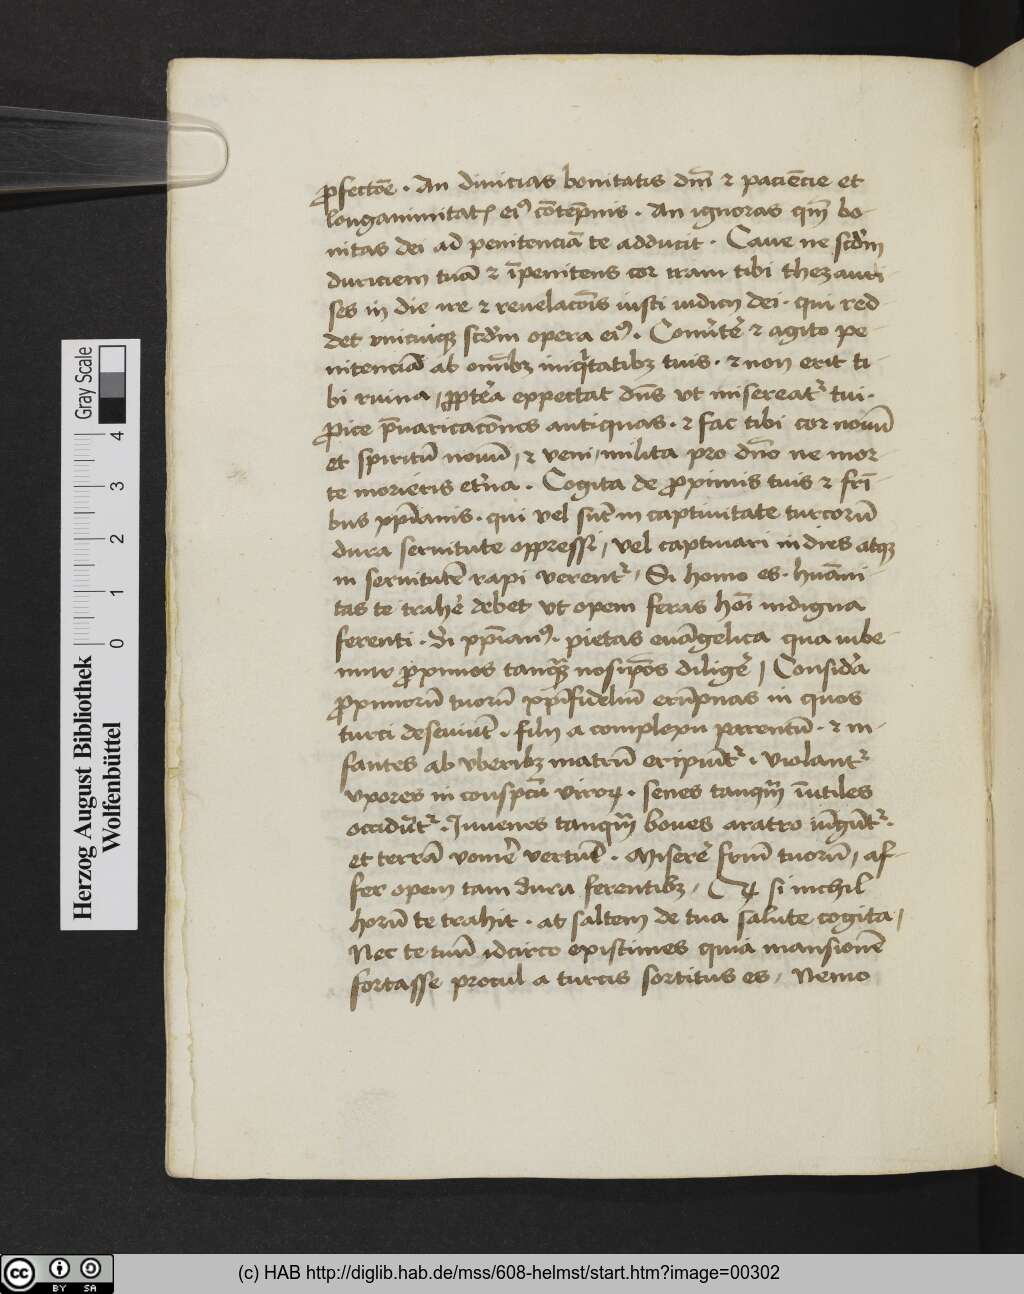 ꝓfectōe . An diuicias bonitatis dm̄ ⁊ paciēcie et
longanimitatꝭ eiꝰ cōtēpnis . An ignoras qm̄ bo-
nitas dei ad penitenciā te adducit . Caue ne scd̄m
duriciem tuā ⁊ īpenitens cor iram tibi thezauri-
ses in die ire ⁊ reuelacōis iusti iudicij dei . qui red-
det vnicuiqꝫ scd̄m opera eiꝰ . Conu̕te̕ ⁊ agito pe-
nitenciā ab omībꝫ iniq̕tatibꝫ tuis . ⁊ non erit ti-
bi ruina , ꝓpte̕a expectat dn̄s vt misereat᷑ tui .
ꝓice p̄uaricacōnes antiquas . ⁊ fac tibi cor nouū
et spiritū nouū , ⁊ veni , milita pro dn̄o ne mor-
te morieris et̕na . Cogita de ꝓximis tuis ⁊ frī-
bus xp̄ianis . qui vel sūt in captiuitate turcorū
dura seruitute oppressi , vel captiuari in dies atqꝫ
in seruitutē rapi verent᷑ , Si homo es . hūani-
tas te trahe̕ debet vt opem feras hoī indigna
ferenti . Si xp̄ianꝰ . pietas euāgelica qua iube-
mur ꝓximos tanqꝫ nosip̄os dilige̕ , Conside̕a
ꝓximorū tuorū xp̄ifideliū erūpnas in quos
turci deseuiūt . filij a complexu parentū . ⁊ in-
fantes ab vberibꝫ matrū eripiūt᷑ . violant᷑
vxores in conspc̄u viroꝝ . senes tanqm̄ īutiles
occidūt᷑ . Iuuenes tanqm̄ boues aratro iūgūt᷑ .
et terrā vome̕ vertūt . Misere̕ frm̄ tuorū , af-
fer opem tam dura ferentibꝫ , Qꝫ si nichil
horū te trahit . at saltem de tua salute cogita ,
Nec te tutū idcirco existimes quia mansionē
fortasse procul a turcis sortitus es , Nemo
Gray Scale
4
3
2
1
0
Herzog August Bibliothek
Wolfenbüttel
cc BY SA
(c) HAB http://diglib.hab.de/mss/608-helmst/start.htm?image=00302